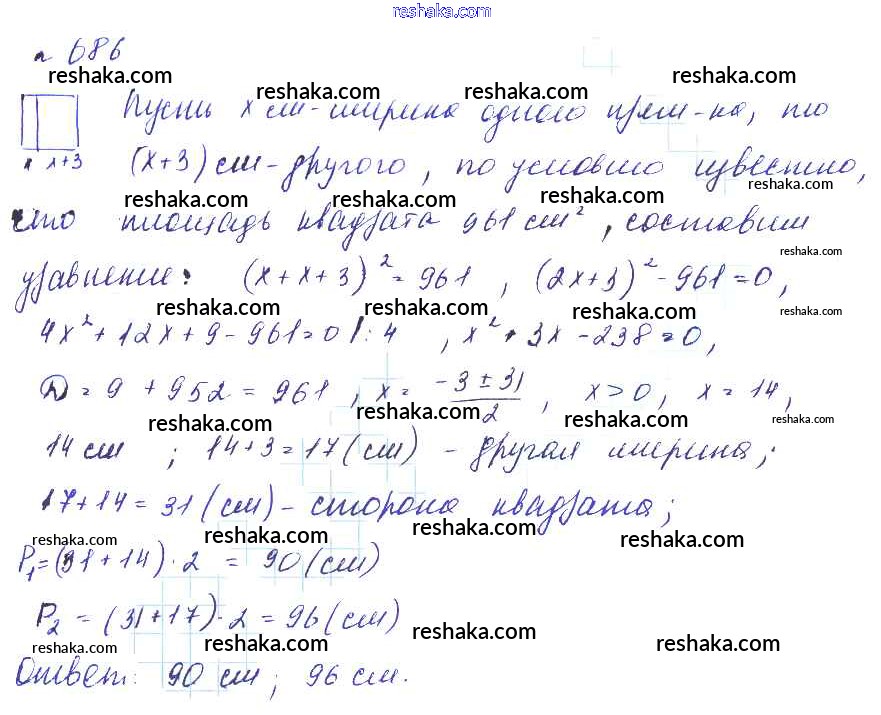 reshaka.com
n 686
reshaka.com reshaka.com reshaka.com reshaka.com
Пусть x см - ширина одного прям-ка, то
x x+3 (x+3) см - другого, по условию известно,
reshaka.com reshaka.com reshaka.com reshaka.com
что площадь квадрата 961 см², составим
reshaka.com
уравнение: (x+x+3)² = 961, (2x+3)² - 961 = 0,
reshaka.com reshaka.com reshaka.com reshaka.com
4x² + 12x + 9 - 961 = 0 |: 4, x² + 3x - 238 = 0,
D = 9 + 952 = 961, x = (-3 ± 31)/2, x > 0, x = 14,
reshaka.com reshaka.com reshaka.com reshaka.com
14 см; 14+3 = 17 (см) - другая ширина;
17+14 = 31 (см) - сторона квадрата;
reshaka.com reshaka.com reshaka.com reshaka.com
P₁ = (31+14) · 2 = 90 (см)
P₂ = (31+17) · 2 = 96 (см)
reshaka.com reshaka.com reshaka.com reshaka.com
Ответ: 90 см; 96 см.